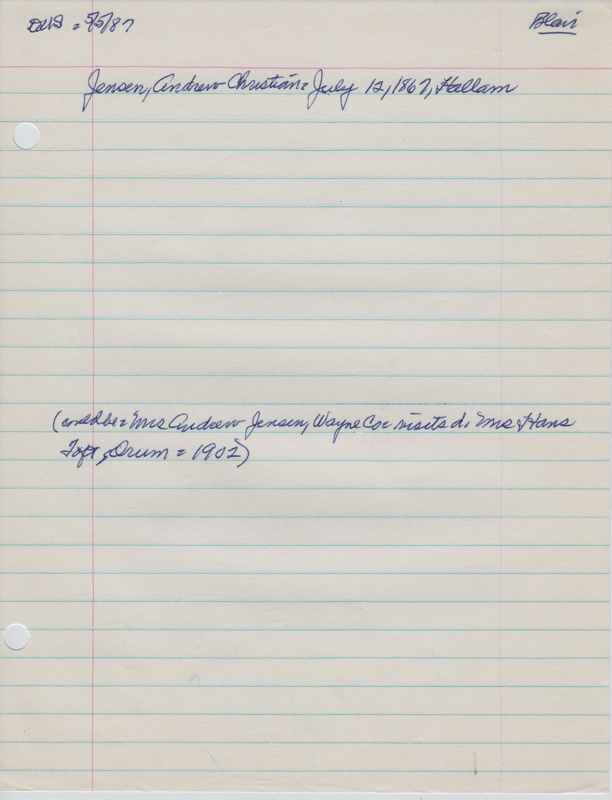 DUS = 5/5/87
Blair
Jensen, Andrew Christian = July 12, 1867, Hallam
(could be = Mrs Andrew Jensen, Wayne Co = visits d, Mrs. Hans
Toft, Orum = 1902)